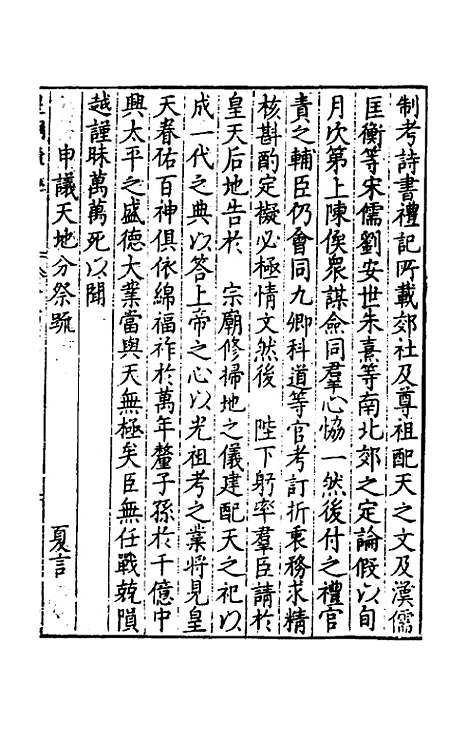 制考詩書禮記所載郊社及尊祖配天之文及漢儒
匡衡等宋儒劉安世朱熹等南北郊之定論假以旬
月次第上陳俟眾謀僉同羣心恊一然後付之禮官
責之輔臣仍會同九卿科道等官考訂折衷務求精
核斟酌定擬必極情文然後 陛下躬率羣臣請於
皇天后地告於 宗廟修掃地之儀建配天之祀以
成一代之典以答上帝之心以光祖考之業將見皇
天眷佑百神俱依綿福祚於萬年釐子孫於千億中
興太平之盛德大業當與天無極矣臣無任戰兢隕
越謹昧萬萬死以聞
申議天地分祭疏 夏言